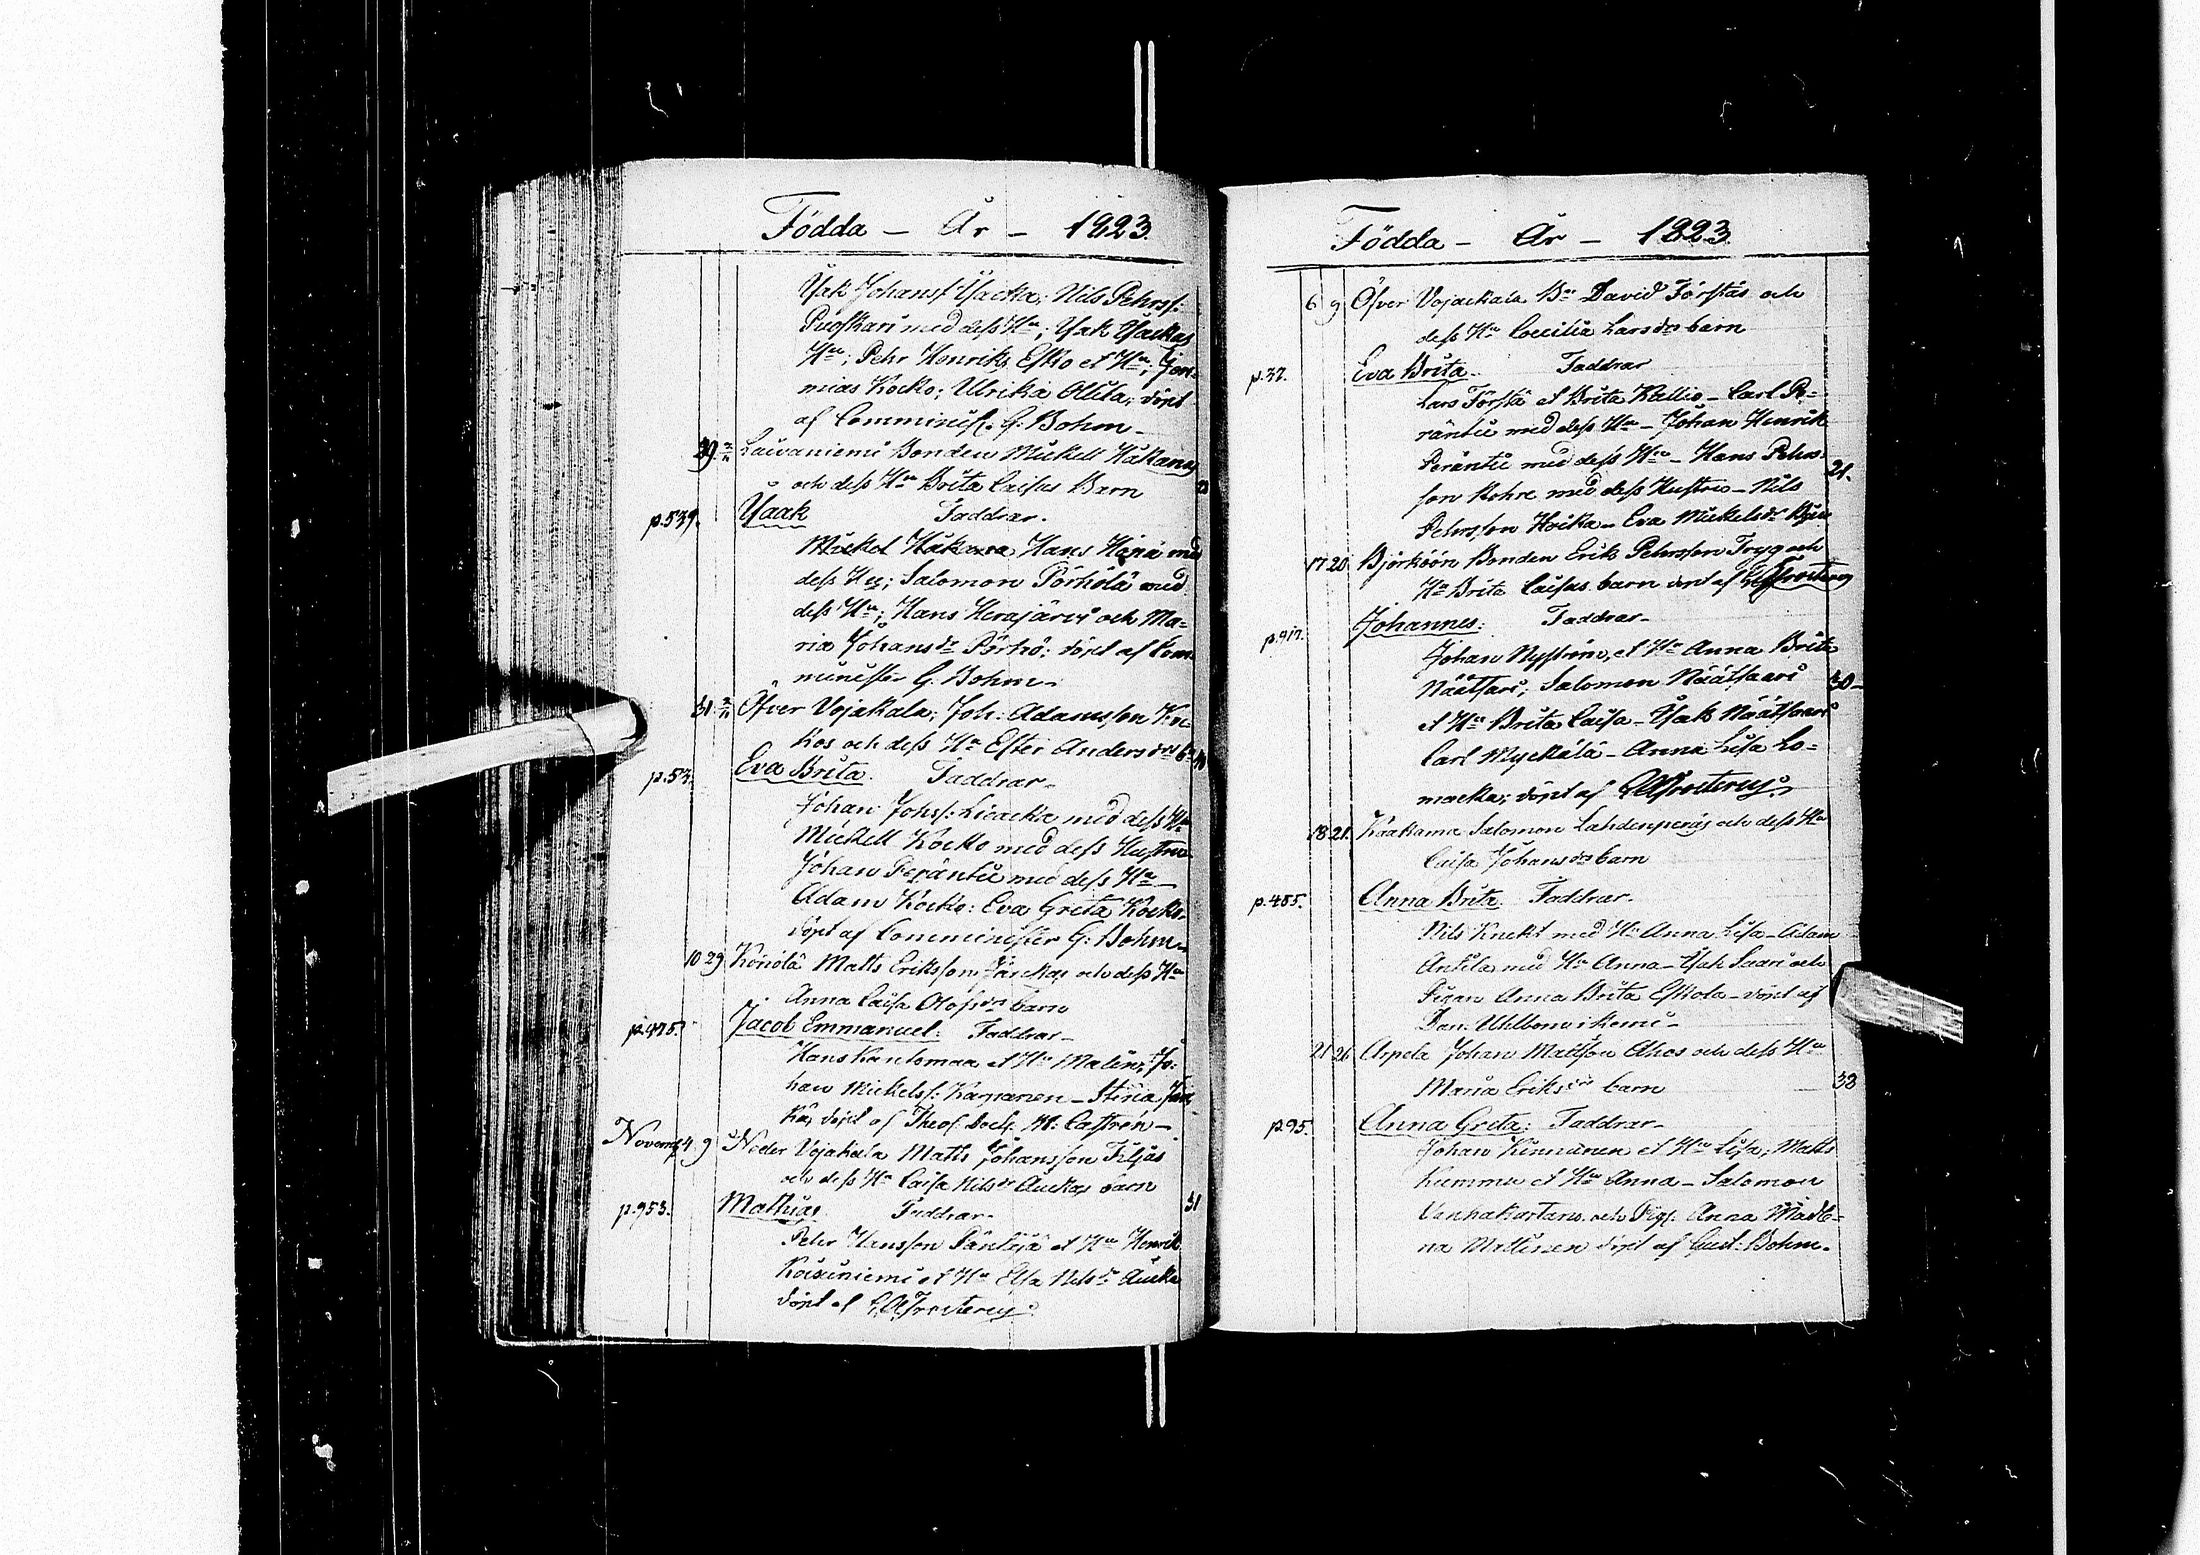 Födda – År – 1823.
Isak Johansſ: Yaacka; Nils Pehrsſ:
med deſs Hu; Isak
Hu; Pehr Henriks Esko et Hu;
mias Kocko; Ulrika Ollila; döpt
af Comminist. G. Bohm –
29 2/11 Laivaniemi Bonden Mickell Håkans
och deſs Hu Brita Caisas Barn
23
p.539. Isaak Faddrar.
Mickel Håkana Hans med
deſs Hu; Salomon Pörhölä med
deſs Hu; Hans Herajärvi och Ma=
ria Johansdr Pörhö; döpt af Com=
minister G. Bohm –
31 2/11 Öfver Vojakala; Joh: Adamsſon Ko=
kos och deſs Hu Ester Andersdrs bn
40
p.57. Eva Brita. Faddrar –
Johan Johsſ: Liedcka med deſs Hu
Mickell Kocko med deſs Hustru
Johan Peräntie med deſs Hu –
Adam Kocko: Eva Greta Kocko.
döpt af Comminister G: Bohm –
10 29 Könölä Matts Eriksſon och deſs Hu
Anna Caisa Olofsdrs barn
p.475. Jacob Emmanuel. Faddrar –
Hans Kantomaa et Hu Malin; Jo:
han Mickelsſ: Karjanen – Stina
döpt af Theol. Doct. M: Castrén –
Novemb. 4 9 Neder Vojakala Matts Johansſon
och deſs Hu Caisa Nilsdr Auckas barn
p.953. Mathias. Faddrar –
31
Pehr Hansſon Päntijä et Hu Henrik
Koivuniemi et Hu Elsa Nilsdr Aucka
döpt af
Födda – År – 1823
6 9 Öfver Vojackala Bn David Förstas och
deſs Hu Coecilia Larsdrs barn
p.37. Eva Brita. Faddrar
Lars Förstä et Brita Kallio – Carl Pe=
räntie med deſs Hu – Johan Henrik
Peräntie med deſs Hu – Hans Pehrs=
21.
ſon Rohre med deſs Hustru – Nils
Pehrsſon Hoika – Eva Mickelsdr
17 20. Björköön Bonden Erik Pehrsſon Tryg och
Hu Brita Caisas barn döpt af
p.917. Johannes: Faddrar –
Johan Nyström, et Hu Anna Brita
Näätsari; Salomon Näätsaari
30
et Hu Brita Caisa – Isak Näätsaari
Carl Myckälä – Anna Lisa Lo=
macka; döpt af
18 21. Kaakama Salomon Lahdenperäs och deſs Hu
Caisa Johansdrs barn
p.485. Anna Brita. Faddrar.
Nils Knekt med Hu Anna Lisa – Adam
Antila med Hu Anna – Isak Saari och
Pigan Anna Brita Eskola – döpt af
Dan. Uhlbom i Kemi –
21 26 Arpela Johan Mattsſon Ahos och deſs Hu
Maria Eriksdrs barn
38
p.95. Anna Greta: Faddrar –
Johan Kinnunen et Hu Lisa; Matts
Kummu et Hu Anna – Salomon
Vanhakartano och Pig: Anna Madle=
na Mattinen döpt af Gust: Bohm.